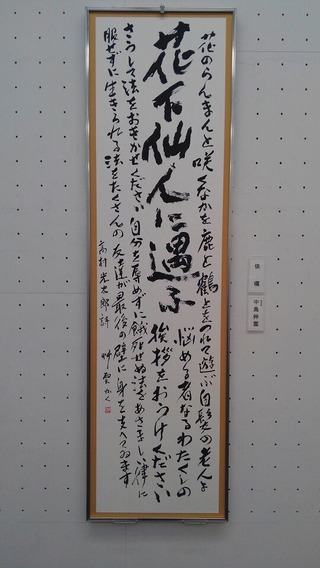 花のらんまんと咲くなかを鹿と鶴とをつれて遊ぶ白髪の老人よ
悩める者なるわたくしの
挨拶をおうけください
花下仙人に遇ふ
さうして法をおきかせください自分を辱めずに餓死せぬ法をあさましい律に
服せずに生きられる法をたくさんの友達が最後の壁に身を支へてゐます
高村光太郎詩
艸雲かく
依嘱
中島艸雲